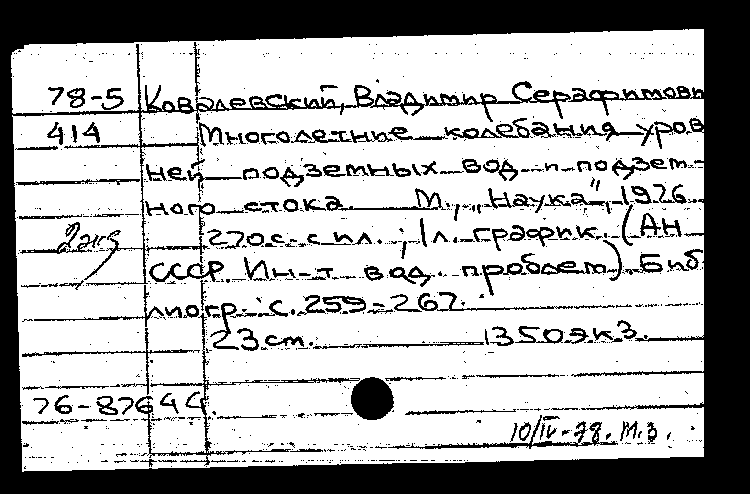 78-5 Ковалевский, Владимир Серафимови
414 Многолетние колебания уров
ней подземных вод и подзем-
ного стока. М., „Наука", 1976
2 экз 270 с. с ил.; 1 л. график. (АН
СССР. Ин-т вод. проблем). Биб
лиогр. с. 259-267.
23 см. 1350 экз.
76-87644
10/IV-78. М.З.